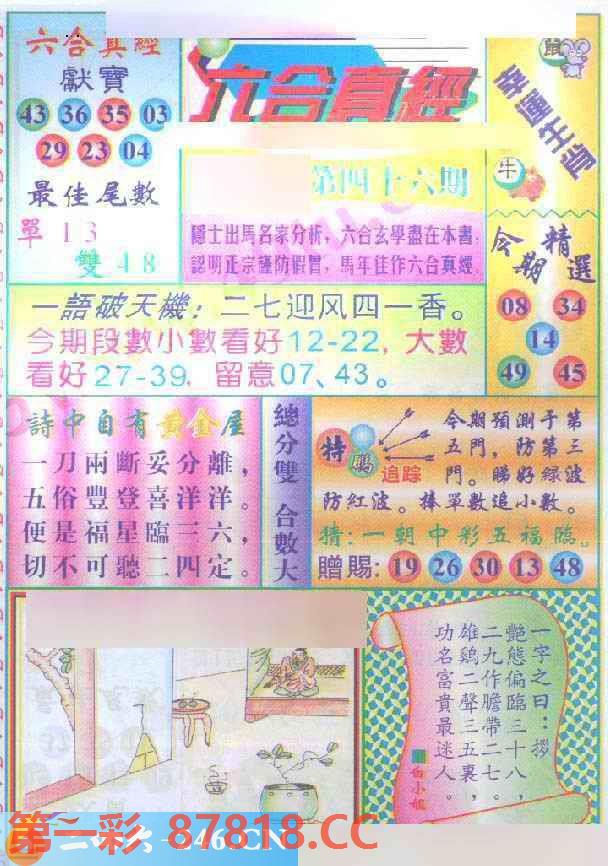 六合真經
獻寶
43 36 35 03
29 23 04
最佳尾數
單 1 3
雙 4 8
六合真經
第四十六期
隱士出馬名家分析，六合玄學盡在本書；
認明正宗謹防假冒，馬年佳作六合真經。
鼠
幸運生肖
牛
今期精選
08 34
14
49 45
一語破天機：二七迎风四一香。
今期段數小數看好12-22，大數
看好27-39，留意07、43。
詩中自有黃金屋
一刀兩斷妥分離，
五俗豐登喜洋洋。
便是福星臨三六，
切不可聽二四定。
總分雙 合數大
特 碼
追踪
今期預測于第
五門，防第三
門。睇好綠波
防紅波。捧單數追小數。
猜：一朝中彩五福臨。
贈賜：19 26 30 13 48
一字之曰：拶
艷態偏臨三十八，
二九作膽帶二七。
雄鷄二聲三五裏，
功名富貴最迷人。
白小姐
第一彩 87818.CC